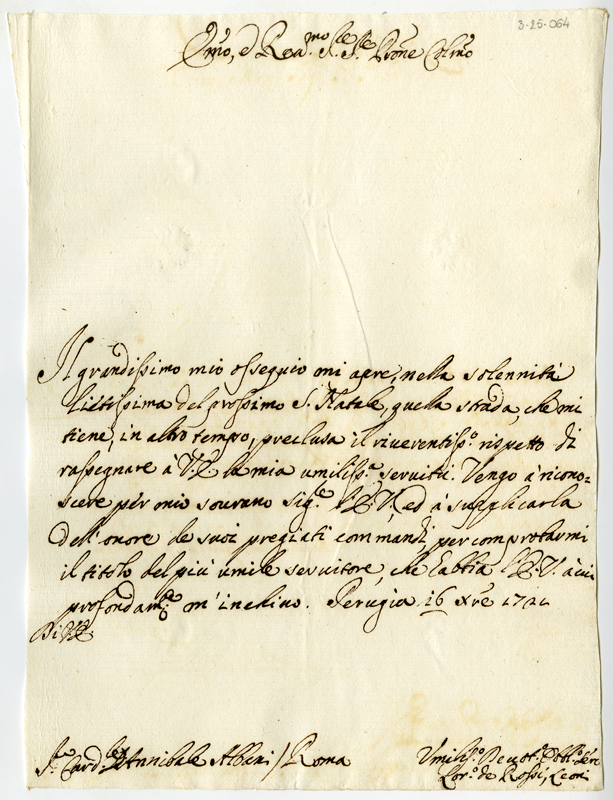 3-25-064
Em̃o, e Reu.mo Sre. Sre. Prõne Colmo
Il grandissimo mio ossequio mi apre, nella solennità
lietissima del prossimo S. Natale, quella strada, che mi
tiene, in altro tempo, preclusa il riuerentiss.o rispetto di
rassegnare à V.E. la mia umiliss.a seruitù. Vengo à ricono=
scere pér mio sourano Sig.e l'E.V., ed à supplicarla
dell'onore de suoi pregiati commandi per comprobarmi
il titolo del più umile seruitore, che habbia l'E.V. à cui
profondam.e m'inchino. Perugia 16 Xr̃e 172
Di V.E.
Sr. Card.le Annibale Albani / Roma
Vmiliss.o Deuot.o Obbl.o Sere
Lor.o de Rossi, Leoni